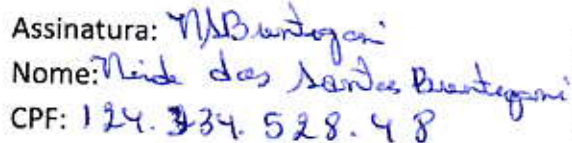 Assinatura: NSBrentegani
Nome: Neide dos Santos Brentegani
CPF: 124.334.528.48